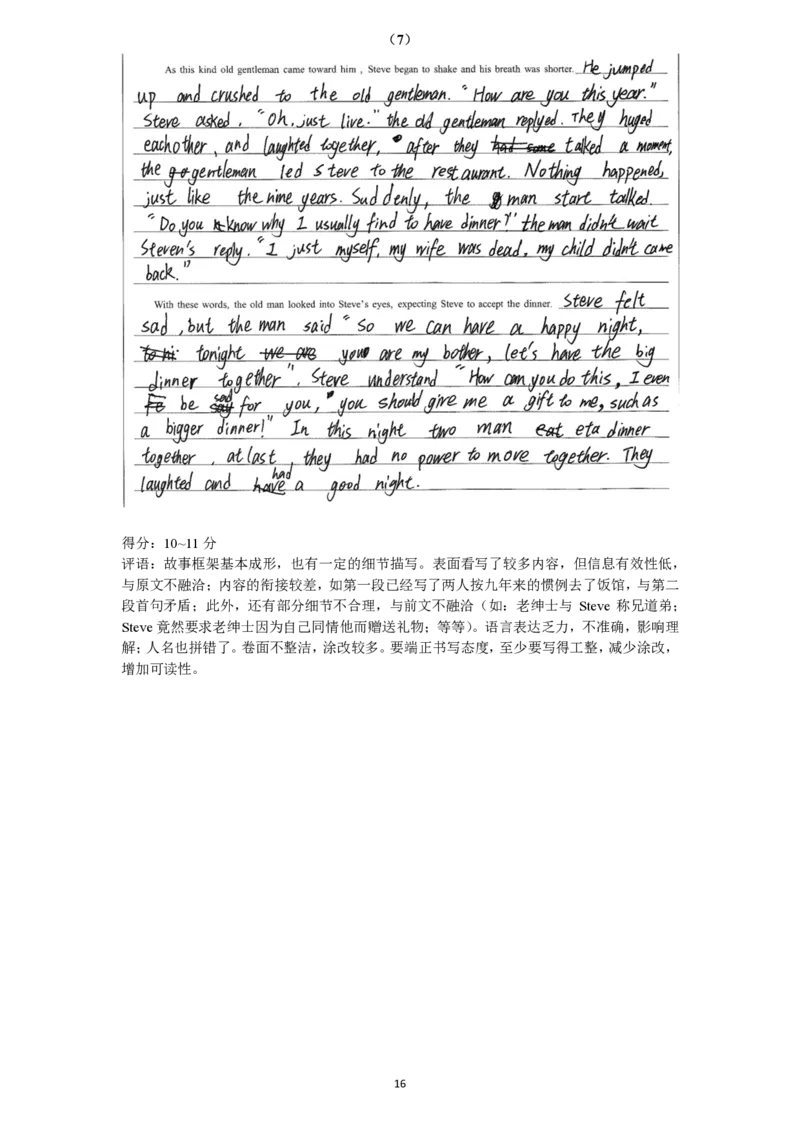 （7）
As this kind old gentleman came toward him , Steve began to shake and his breath was shorter. He jumped
up and crushed to the old gentleman. "How are you this year."
Steve asked. "Oh, just live." the old gentleman replyed. They huged
eachother, and laughted together, after they had some talked a moment,
the go gentleman led Steve to the restaurant. Nothing happened,
just like the nine years. Suddenly, the man start talked.
"Do you know why I usually find to have dinner?" the man didn't wait
Steven's reply. "I just myself, my wife was dead, my child didn't came
back."
With these words, the old man looked into Steve's eyes, expecting Steve to accept the dinner. Steve felt
sad, but the man said "So we can have a happy night,
to hi tonight we are you are my bother, let's have the big
dinner together". Steve understand "How can you do this, I even
be say sad for you, you should give me a gift to me, such as
a bigger dinner!" In this night two man eat eta dinner
together, at last, they had no power to move together. They
laughted and have had a good night.
得分：10~11 分
评语：故事框架基本成形，也有一定的细节描写。表面看写了较多内容，但信息有效性低，
与原文不融洽；内容的衔接较差，如第一段已经写了两人按九年来的惯例去了饭馆，与第二
段首句矛盾；此外，还有部分细节不合理，与前文不融洽（如：老绅士与 Steve 称兄道弟；
Steve 竟然要求老绅士因为自己同情他而赠送礼物；等等）。语言表达乏力，不准确，影响理
解；人名也拼错了。卷面不整洁，涂改较多。要端正书写态度，至少要写得工整，减少涂改，
增加可读性。
16